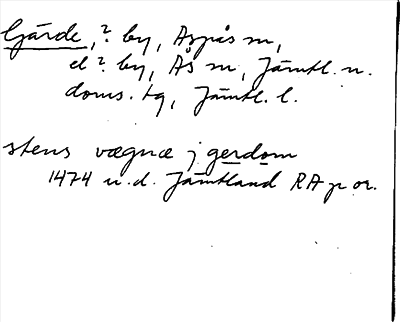 Gärde,? by, Aspås sn,
el? by, Ås sn, Jämtl. n.
doms. tg, Jämtl. l.
stens vægnæ j gerdom
1474 u.d. Jämtland RAp or.